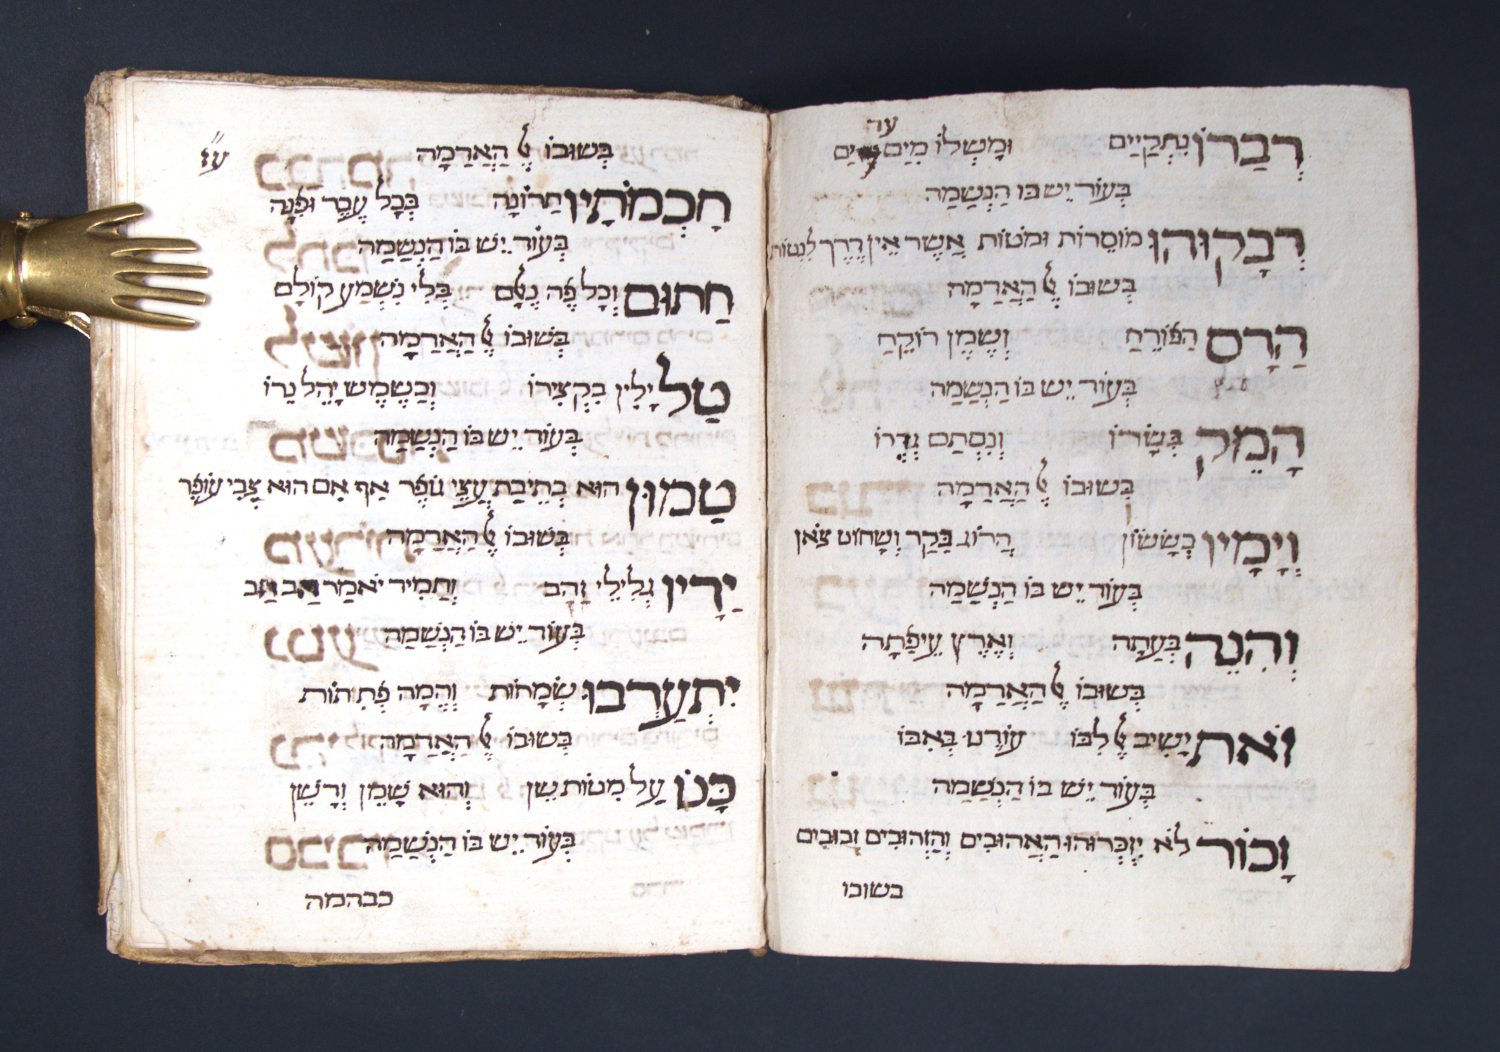 דְבָרוֹ נִתְקַיַּים וּמָשְׁלוֹ מַיִם עַד יַם
בְּעוֹד יֵשׁ בּוֹ הַנְשָׁמָה
דְבָקוּהוּ מוֹסֵרוֹת וּמֹטוֹת אֲשֶׁר אֵין דֶרֶךְ לִנְטוֹת
בְּשׁוּבוֹ אֶל הַאֲדָמָה
הַדָּס הַפּוֹרֵחַ וְשֶׁמֶן רוֹקֵחַ
בְּעוֹד יֵשׁ בּוֹ הַנְשָׁמָה
הָמֵק בְּשָׂרוֹ וְנִסְתַּם נֶגְדּוֹ
בְּשׁוּבוֹ אֶל הַאֲדָמָה
וְיָמָיו בְּשָׂשׂוֹן הָרוֹג בָּקָר וְשָׁחוֹט צֹאן
בְּעוֹד יֵשׁ בּוֹ הַנְשָׁמָה
וְהִנֵּה בְעַתָה וְאֶרֶץ עֵיפָתָה
בְּשׁוּבוֹ אֶל הַאֲדָמָה
זֹאת יָשִׁיב אֶל לִבּוֹ עוֹדֶנּוּ בְּאִבּוֹ
בְּעוֹד יֵשׁ בּוֹ הַנְשָׁמָה
זָכוֹר לֹא יִזְכְּרוּהוּ הַאֲהוּבִים וְהַזְּהוּבִים זְבוּבִים
בשובו
ע״ז
בְּשׁוּבוֹ אֶל הַאֲדָמָה
חָכְמֹתָיו תָּרֹונָּה בְּכָל עֵבֶר וּפִנָּה
בְּעוֹד יֵשׁ בּוֹ הַנְשָׁמָה
חָתוּם וְכָל פֶּה נֶאֱלָם בְּלִי נִשְׁמַע קוֹלָם
בְּשׁוּבוֹ אֶל הַאֲדָמָה
טַל יָלִין בִּקְצִירוֹ וְכַשֶּׁמֶשׁ יָהֵל נֵרוֹ
בְּעוֹד יֵשׁ בּוֹ הַנְשָׁמָה
טָמוּן הוּא בְתֵיבַת עֲצֵי גֹפֶר אַף אִם הוּא צְבִי עוֹפֶר
בְּשׁוּבוֹ אֶל הַאֲדָמָה
יָדָיו גְּלִילֵי זָהָב וְתָמִיד יֹאמַר הַב הַב
בְּעוֹד יֵשׁ בּוֹ הַנְשָׁמָה
יִתְעַרְבוּ שְׂמָחוֹת וְהֵמָּה פְתִחוֹת
בְּשׁוּבוֹ אֶל הַאֲדָמָה
כַּנּוֹ עַל מִטוֹת שֵׁן וְהוּא שָׁמֵן וְדָשֵׁן
בְּעוֹד יֵשׁ בּוֹ הַנְשָׁמָה
כבהמה